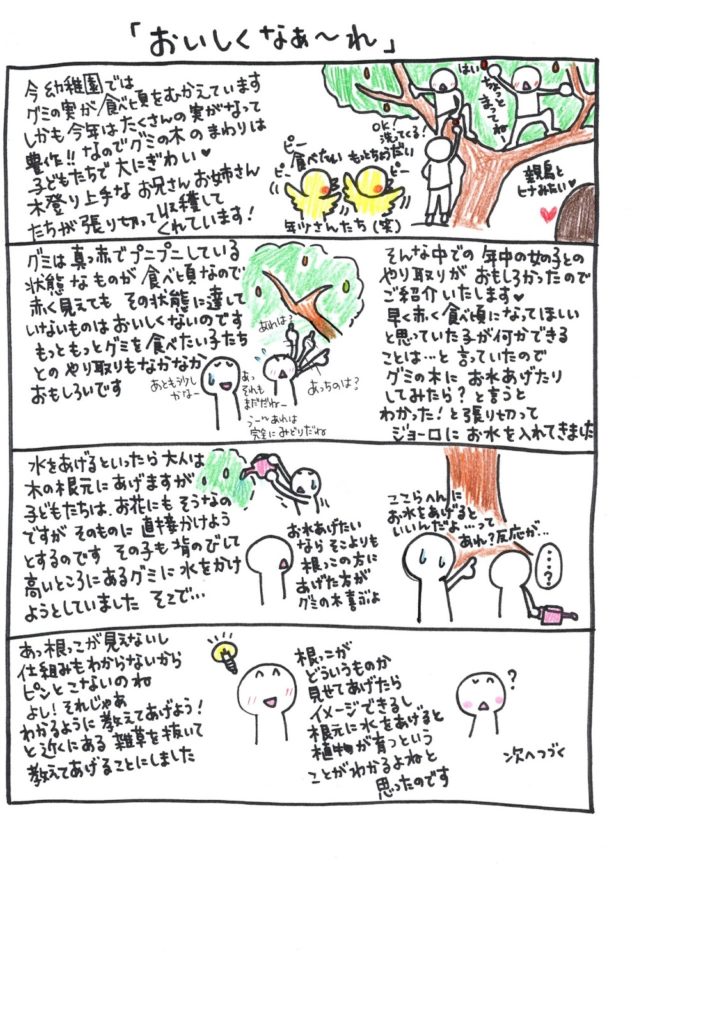 「おいしくなぁ〜れ」
今幼稚園では
グミの実が食べ頃をむかえています
しかも今年はたくさんの実がなって
豊作!! なのでグミの木のまわりは
子どもたちで大にぎわい♥
木登り上手なお兄さんお姉さん
たちが張り切って収穫して
くれています!
はい
ちょっと
まっててね
OK!
洗ってくる!
ピー
食べたい
もっとちょうだい
ピー
ピー
年少さんたち(笑)
親鳥と
ヒナみたい♥
グミは真っ赤でプニプニしている
状態なものが食べ頃なので
赤く見えてもその状態に達して
いないものはおいしくないのです
もっともっとグミを食べたい子たち
とのやり取りもなかなか
おもしろいです
あれは?
あっちのは?
あともう少し
かなー
あっ
それも
まだだねー
うーんあれは
完全にみどりだね
そんな中での年中の女の子との
やり取りがおもしろかったので
ご紹介いたします♥
早く赤く食べ頃になってほしい
と思っていた子が何かできる
ことは…と言っていたので
グミの木にお水あげたり
してみたら?と言うと
わかった!と張り切って
ジョーロにお水を入れてきました
水をあげるといったら大人は
木の根元にあげますが
子どもたちは、お花にもそうなの
ですがそのものに直接かけよう
とするのです その子も背のびして
高いところにあるグミに水をかけ
ようとしていました そこで…
お水あげたい
ならそこよりも
根っこの方に
あげた方が
グミの木喜ぶよ
ここらへんに
お水をあげると
いいんだよ…って
あれ?反応が…
…?
あっ根っこが見えないし
仕組みもわからないから
ピンとこないのね
よし!それじゃあ
わかるように教えてあげよう!
と近くにある雑草を抜いて
教えてあげることにしました
根っこが
どういうものか
見せてあげたら
イメージできるし
根元に水をあげると
植物が育つという
ことがわかるよねと
思ったのです
?
次へつづく